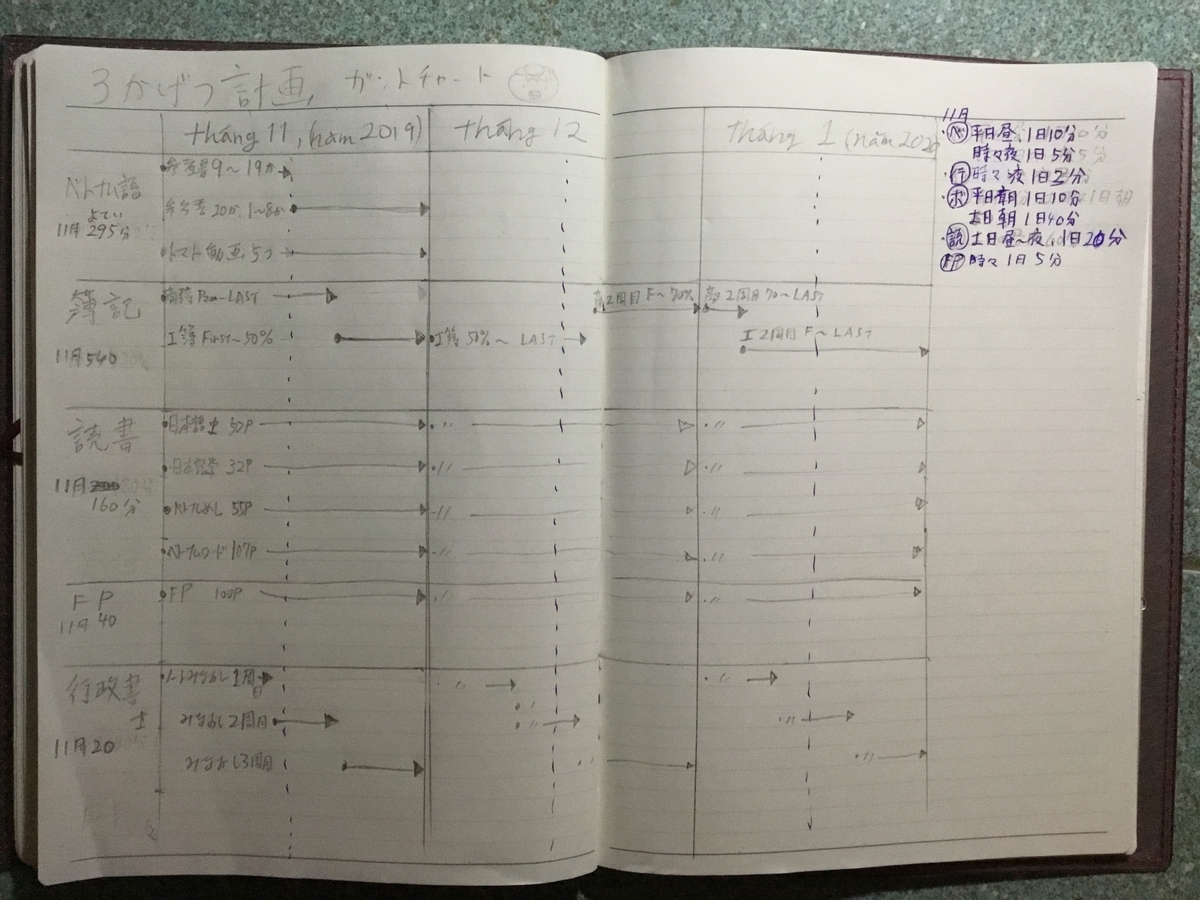 3かげつ計画 ガントチャート
tháng 11, (năm 2019) tháng 12 tháng 1 (năm 2020
ベトナム語
よてい
11月 295分
参考書 9～19か
参考書 20か, 1～8か
トマト動画 5つ
簿記
11月 540
LAST
工簿 First～50%
工簿 50%～ LAST
商2周目 F～70%
商2周目 70～LAST
工2周目 F～LAST
読書
11月
160分
日本語土 50P 〃 〃
日本語学 32P 〃 〃
ベトナムめし 55P 〃 〃
ベトナムロード 107P 〃 〃
FP
11月 40
FP 100P 〃 〃
行政書
士
11月 20
ノートみなおし 1周目 〃 〃
みなおし 2周目 〃 〃
みなおし 3周目 〃 〃
11月
・ベ 平日昼, 1日10分
時々夜 1日5分
・行 時々夜 1日2分
・ボ 平日朝 1日10分
土日朝 1日40分
・読 土日昼～夜, 1日20分
・FP 時々 1日5分